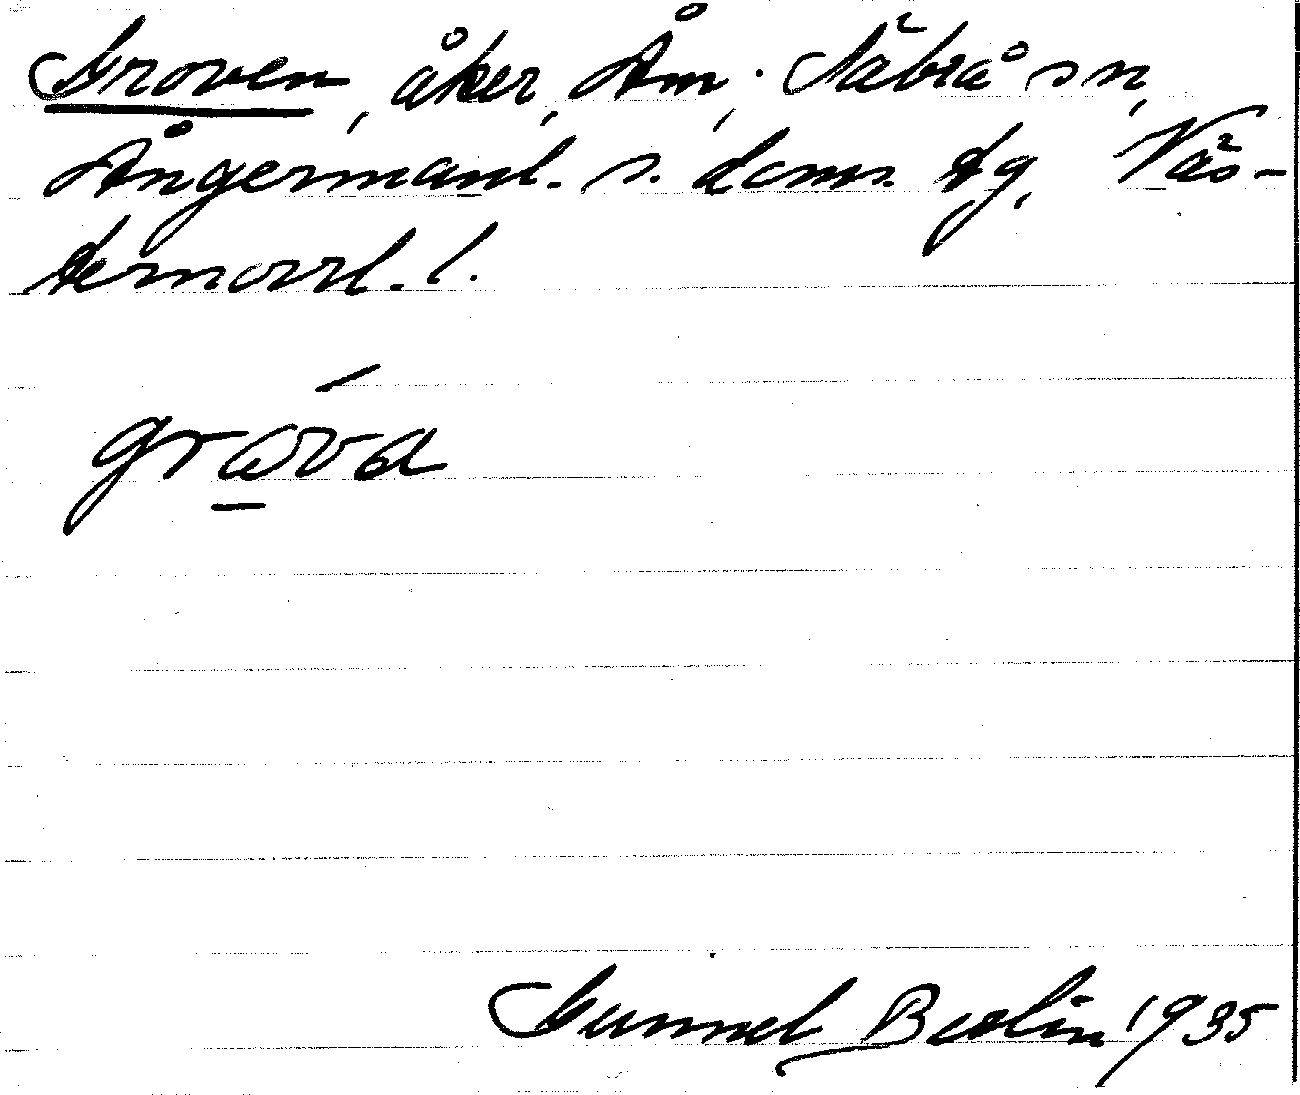 Groven, åker, Åm, Säbrå sn,
Ångermanl. s. doms. tg, Väs-
ternorrl. l.
gråva
Gunnel Beolin 1935